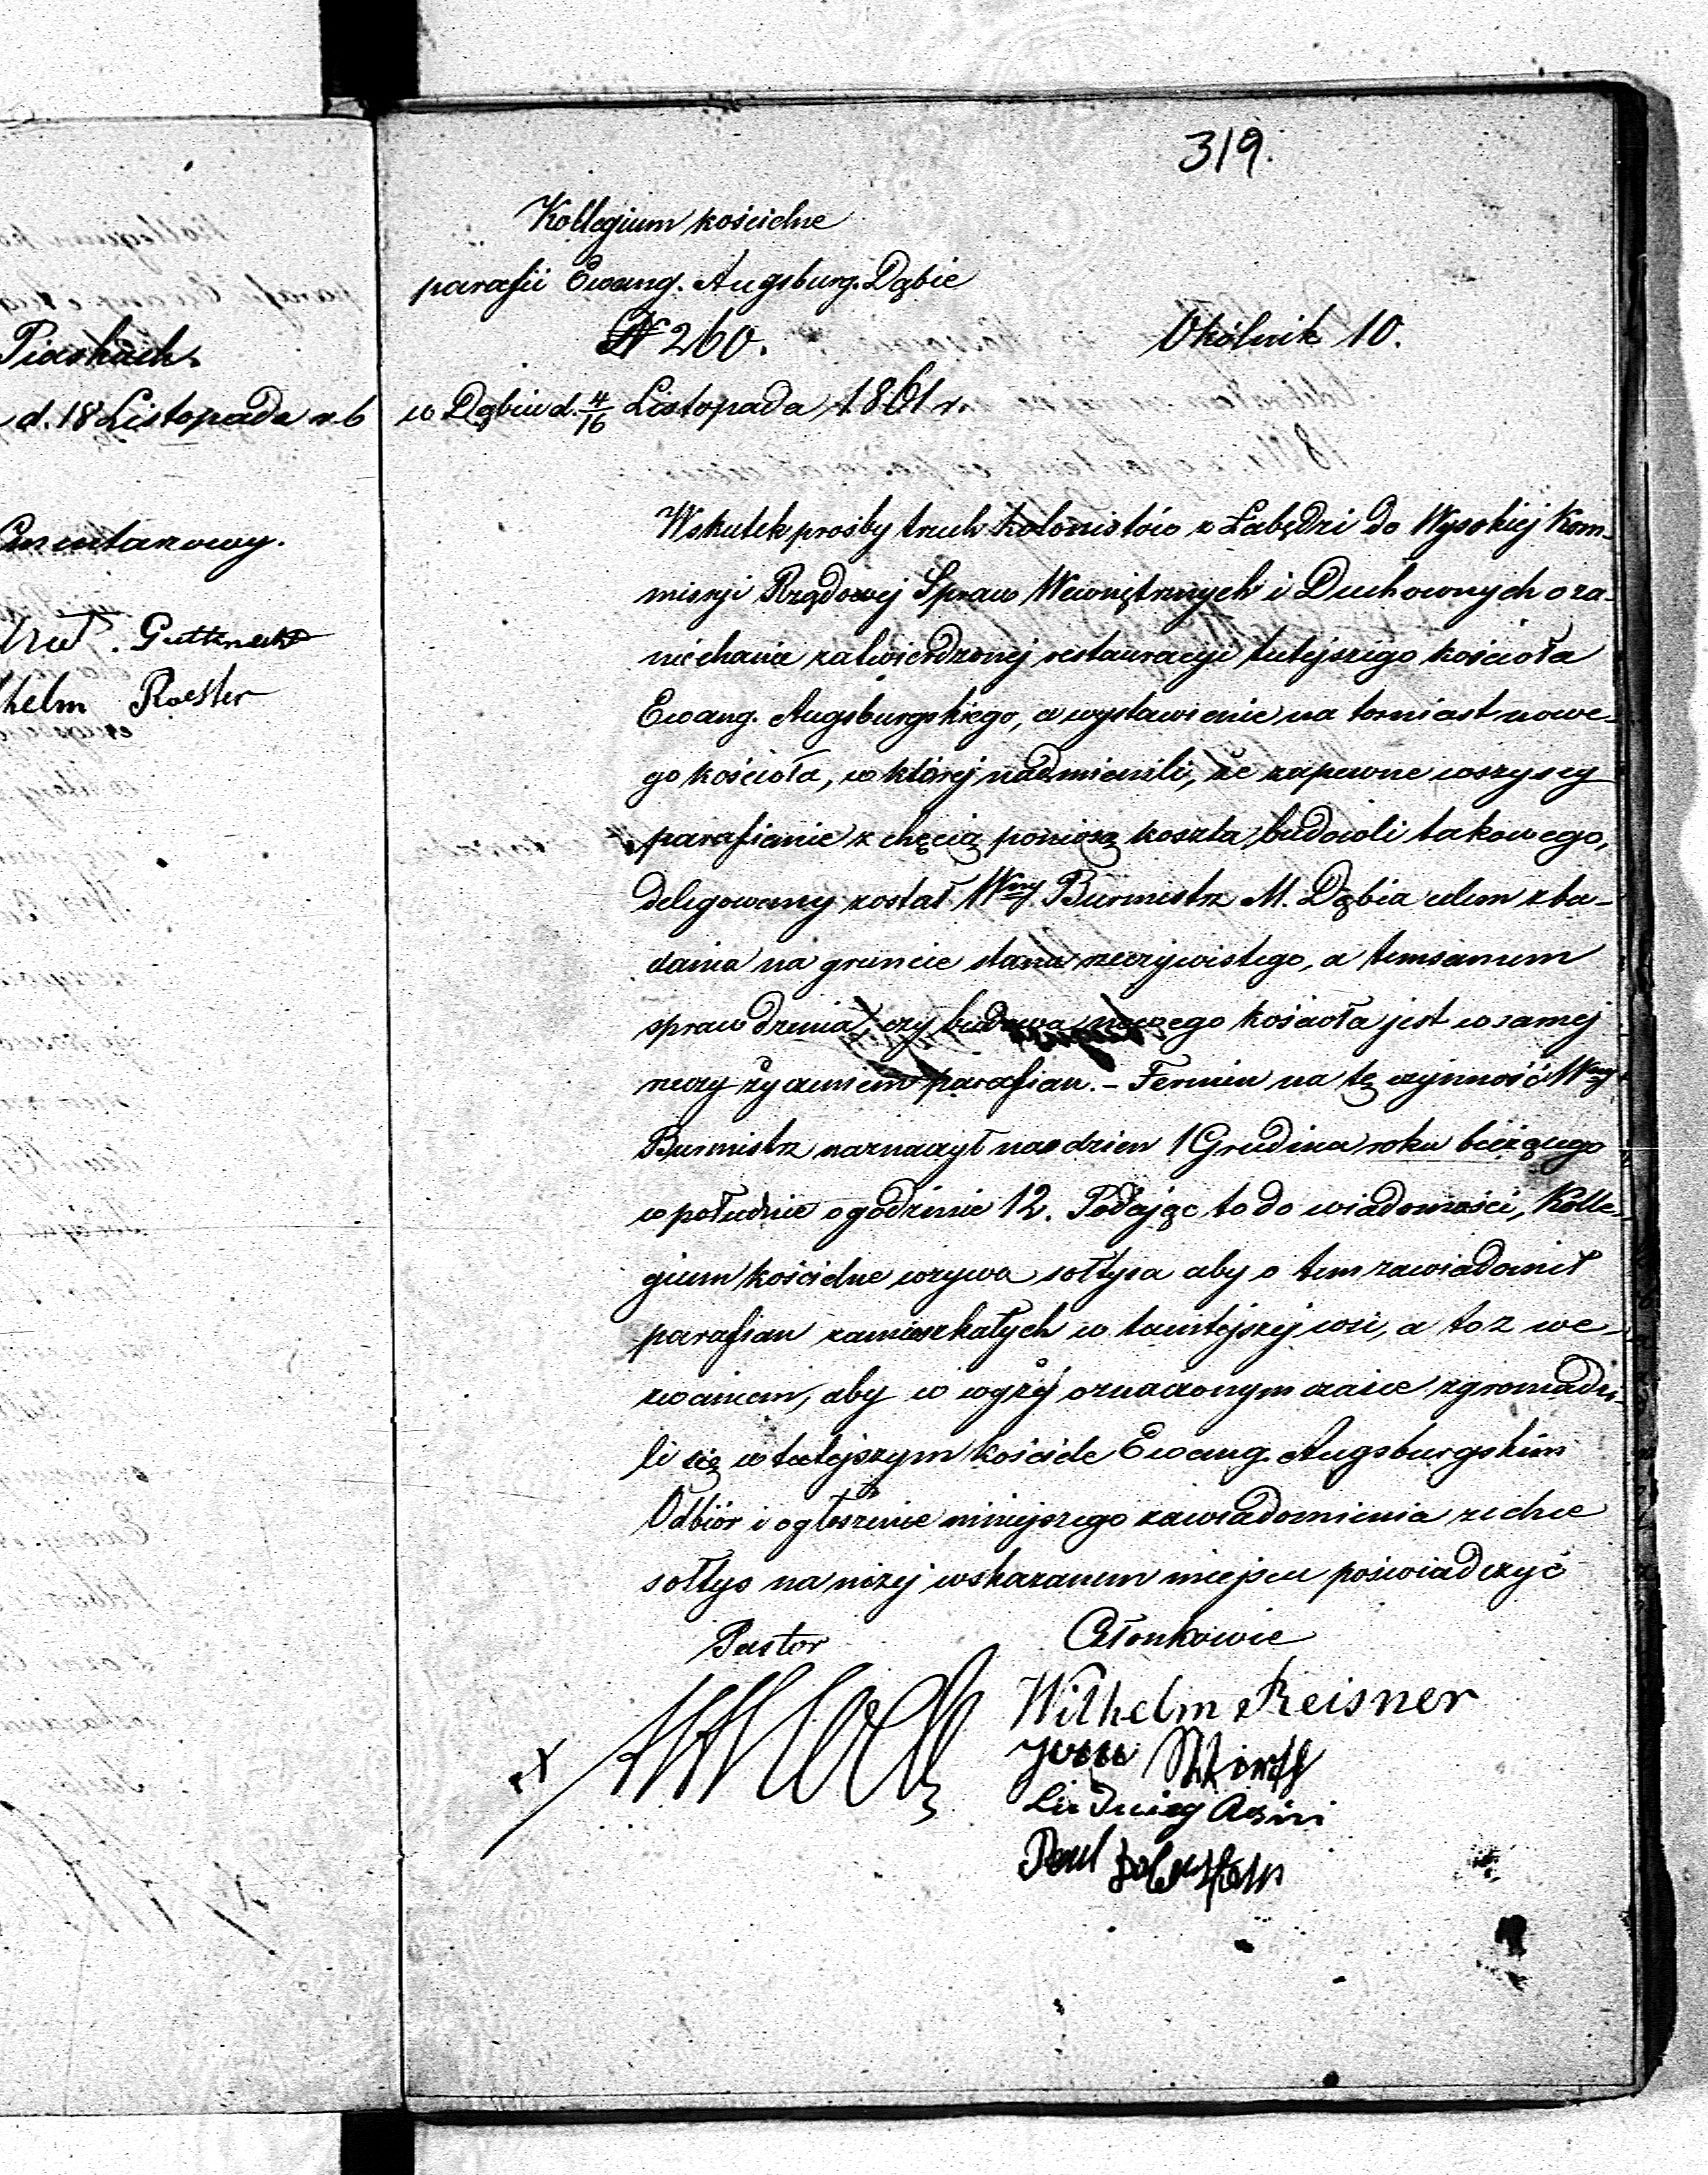 319.
Kollegium kościelne
parafii Ewang. Augsburg. Dąbie
N 260.
Okólnik 10.
w Dąbiu d. 4/16 Listopada 1861 r.
Piaskach
d. 18 Listopada r. b
Cmentarowy.
Guttknecht
helm Roesler
Wskutek prośby trzech kolonistów z Łabędzi do Wysokiej Kom-
missyi Rządowej Spraw Wewnętrznych i Duchownych o za-
niechania zatwierdzonej restauracyi tutejszego kościoła
Ewang. Augsburgskiego, a wystawienie na tomiast nowe-
go kościoła, w której nadmienili, że zapewne wszyscy
parafianie z chęcią poniosą koszta budowli takowego,
delegowany został Wny Burmistrz M. Dąbia celem zba-
dania na gruncie stanu rzeczywistego, a temsamem
sprawdzenia, czy budowa nowego kościoła jest w samej
rzeczy życzeniem parafian. – Termin na tę czynność Wny
Burmistrz naznaczył na dzien 1 Grudnia roku bieżącego
w południe o godzinie 12. Podając to do wiadomości, Kolle-
gium kościelne wzywa sołtysa aby o tem zawiadomił
parafian zamieszkałych w tamtejszej wsi, a to z we-
zwaniem, aby w wyżej oznaczonym czasie zgromadzi-
li się w tutejszym kościele Ewang. Augsburgskim
Odbiór i ogłoszenie niniejszego zawiadomienia zechce
sołtys na niżej wskazanem miejscu poświadczyć
Pastor
Członkowie
Wilhelm Reisner
Ludwig
Paul